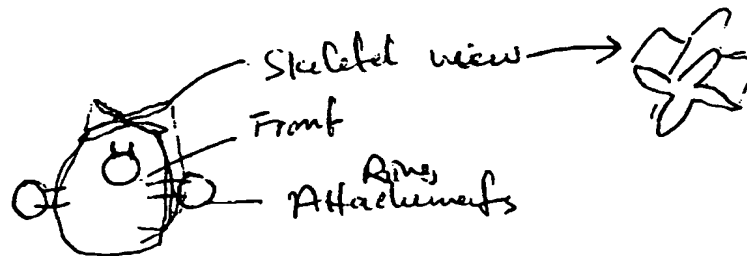 Skeletal view
Front
Ring
Attachments